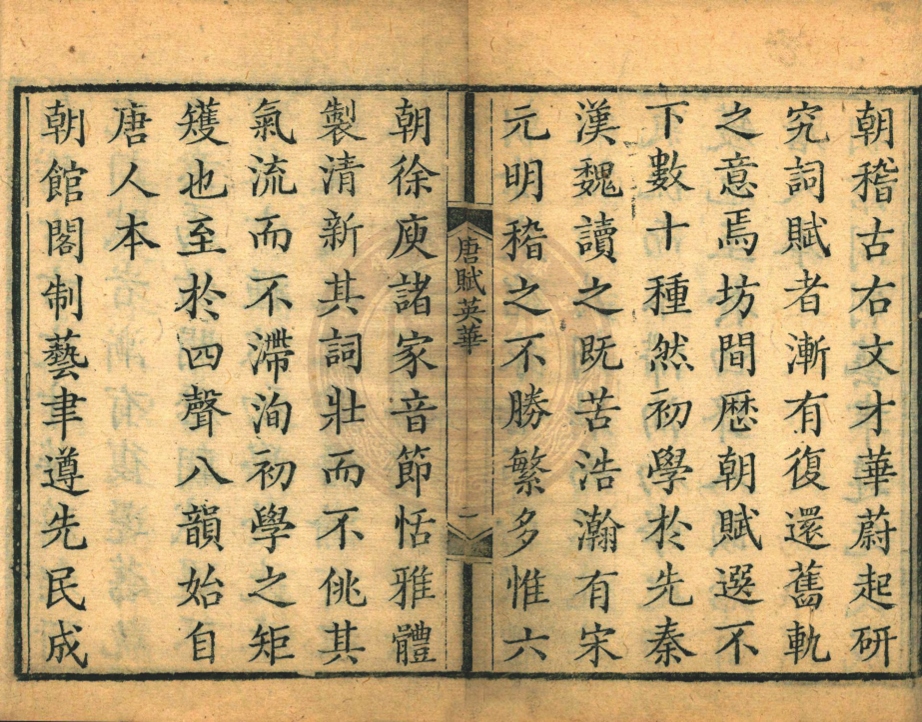 朝稽古右文才華蔚起研
究詞賦者漸有復還舊軌
之意焉坊間歷朝賦選不
下數十種然初學於先秦
漢魏讀之既苦浩瀚有宋
元明稽之不勝繁多惟六
唐賦英華
一
朝徐庾諸家音節恬雅體
製清新其詞壯而不佻其
氣流而不滯洵初學之矩
矱也至於四聲八韻始自
唐人本
朝館閣制藝聿遵先民成